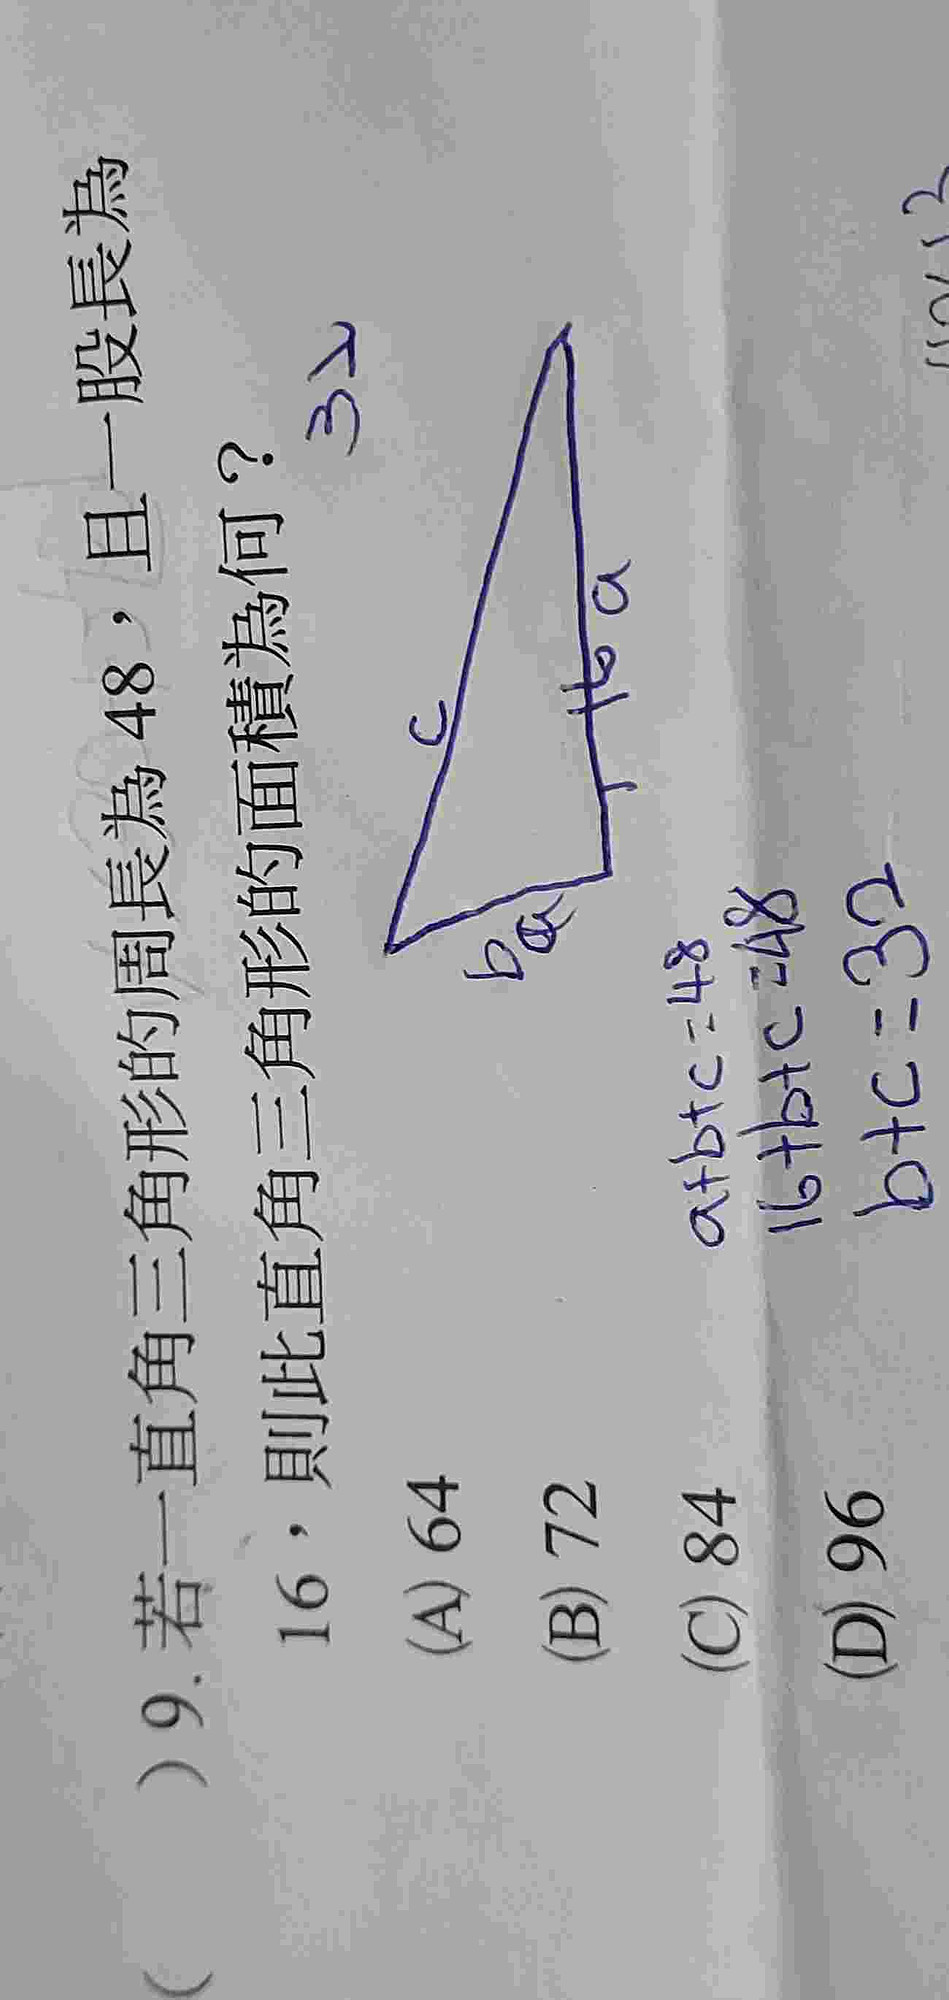 ( ) 9. 若一直角三角形的周長為 48，且一股長為
16，則此直角三角形的面積為何？
32
(A) 64
(B) 72
(C) 84
(D) 96
c
b
16 a
a+b+c=48
16+b+c=48
b+c=32